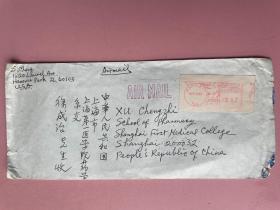 S. Zhong
Hanover Park IL 60103
U.S.A.
Airmail
AIR MAIL
中华人民共和国
上海市
上海第一医学院药学
系交
徐成治 先生 收
XU Chengzhi
School of Pharmacy
Shanghai First Medical College
Shanghai 200032
People's Republic of China